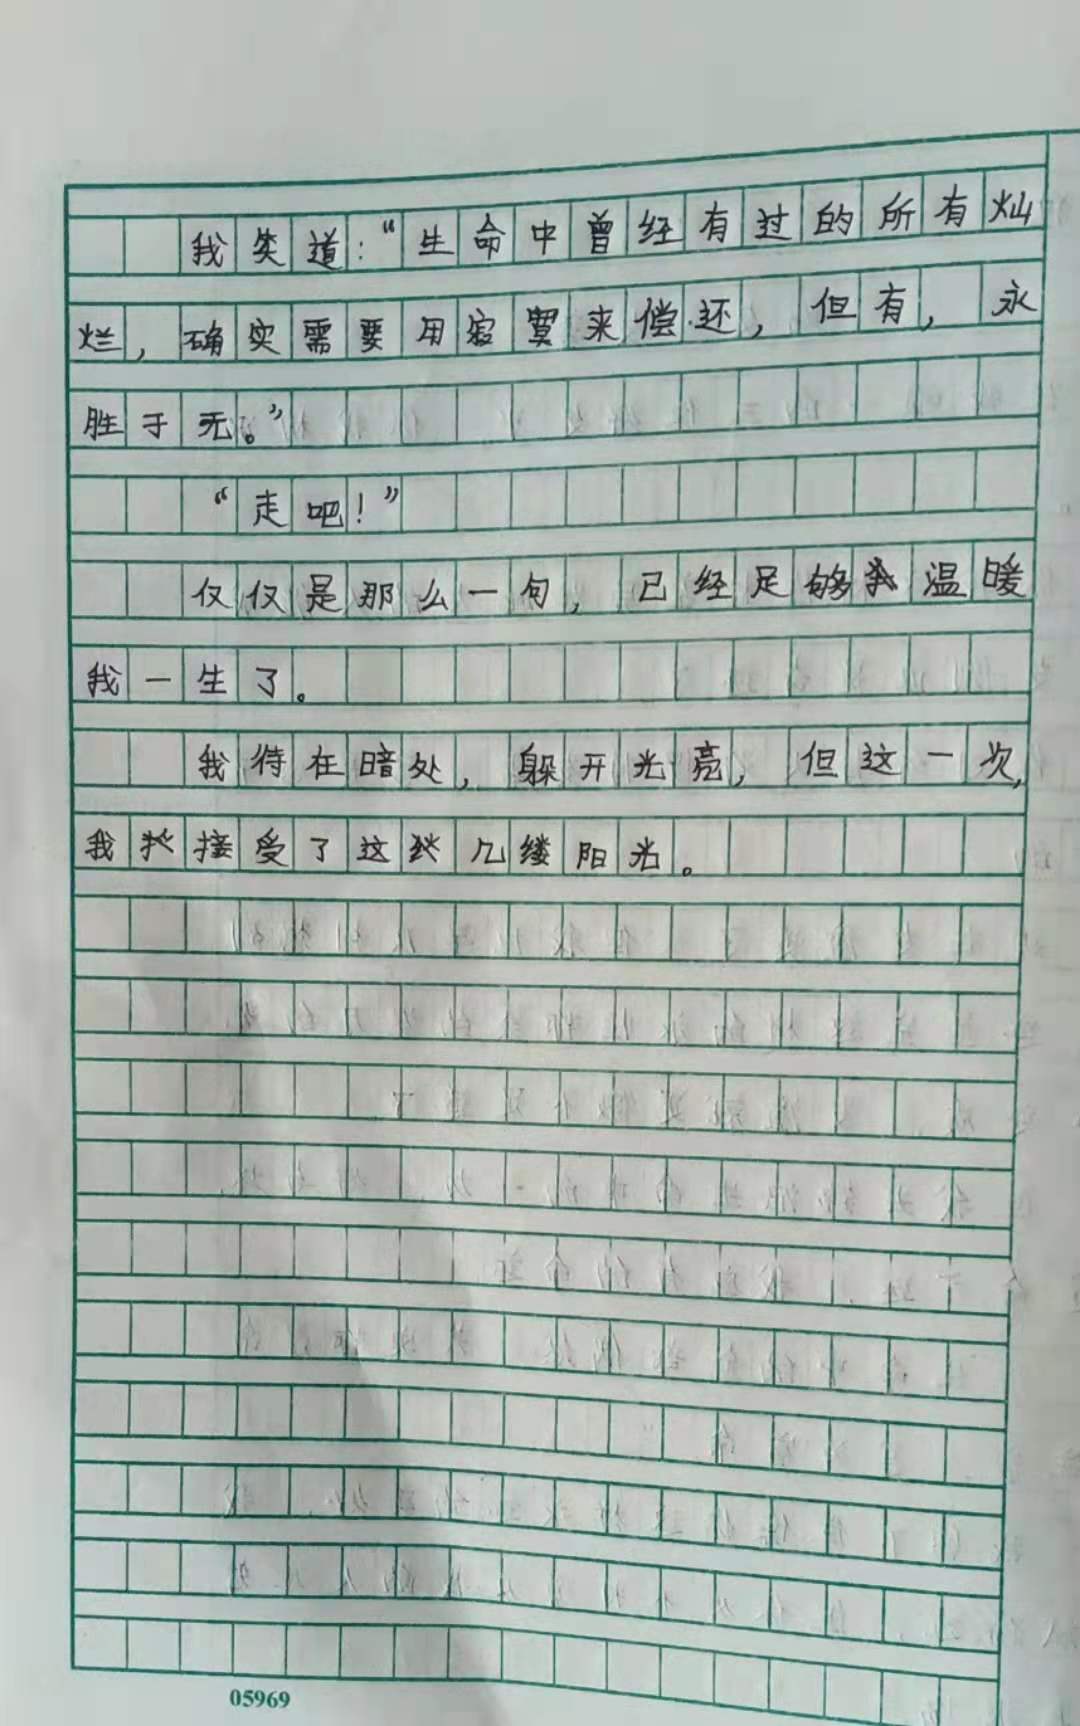 我笑道：“生命中曾经有过的所有灿
烂，确实需要用寂寞来偿还，但有，永
胜于无。”
“走吧！”
仅仅是那么一句，已经足够温暖
我一生了。
我待在暗处，躲开光亮，但这一次，
我接受了这几缕阳光。
05969